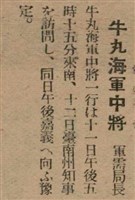 牛丸海軍中將
軍需局長
牛丸海軍中將一行は十一日午後五
時十五分來南、十二日臺南州知事
を訪問し、同日午後嘉義へ向ふ豫
定。